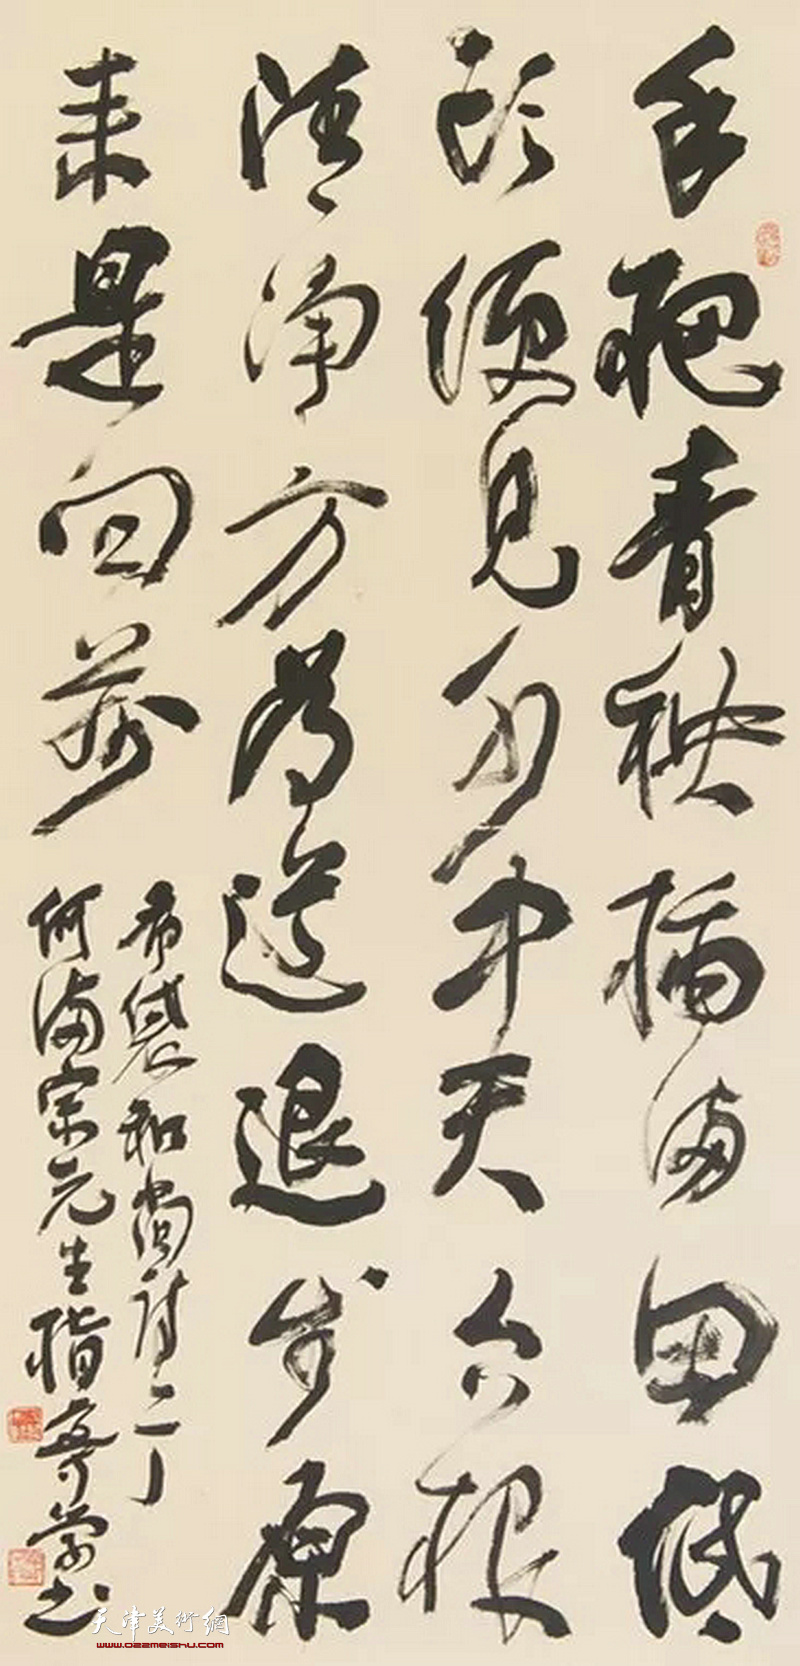 手把青秧插满田低
头便见水中天六根
清净方为道退步原
来是向前
布袋和尚诗一
何满宗先生指
天津美術網
www.022meishu.com